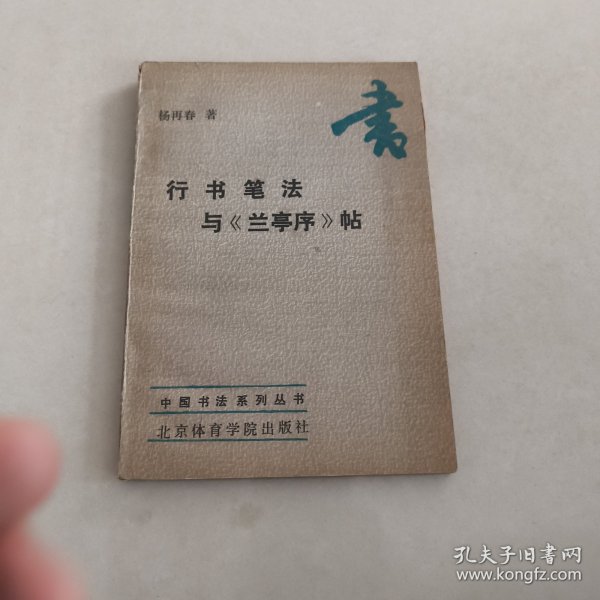 书
杨再春 著
行书笔法
与《兰亭序》帖
中国书法系列丛书
北京体育学院出版社
孔夫子旧书网
www.kongfz.com